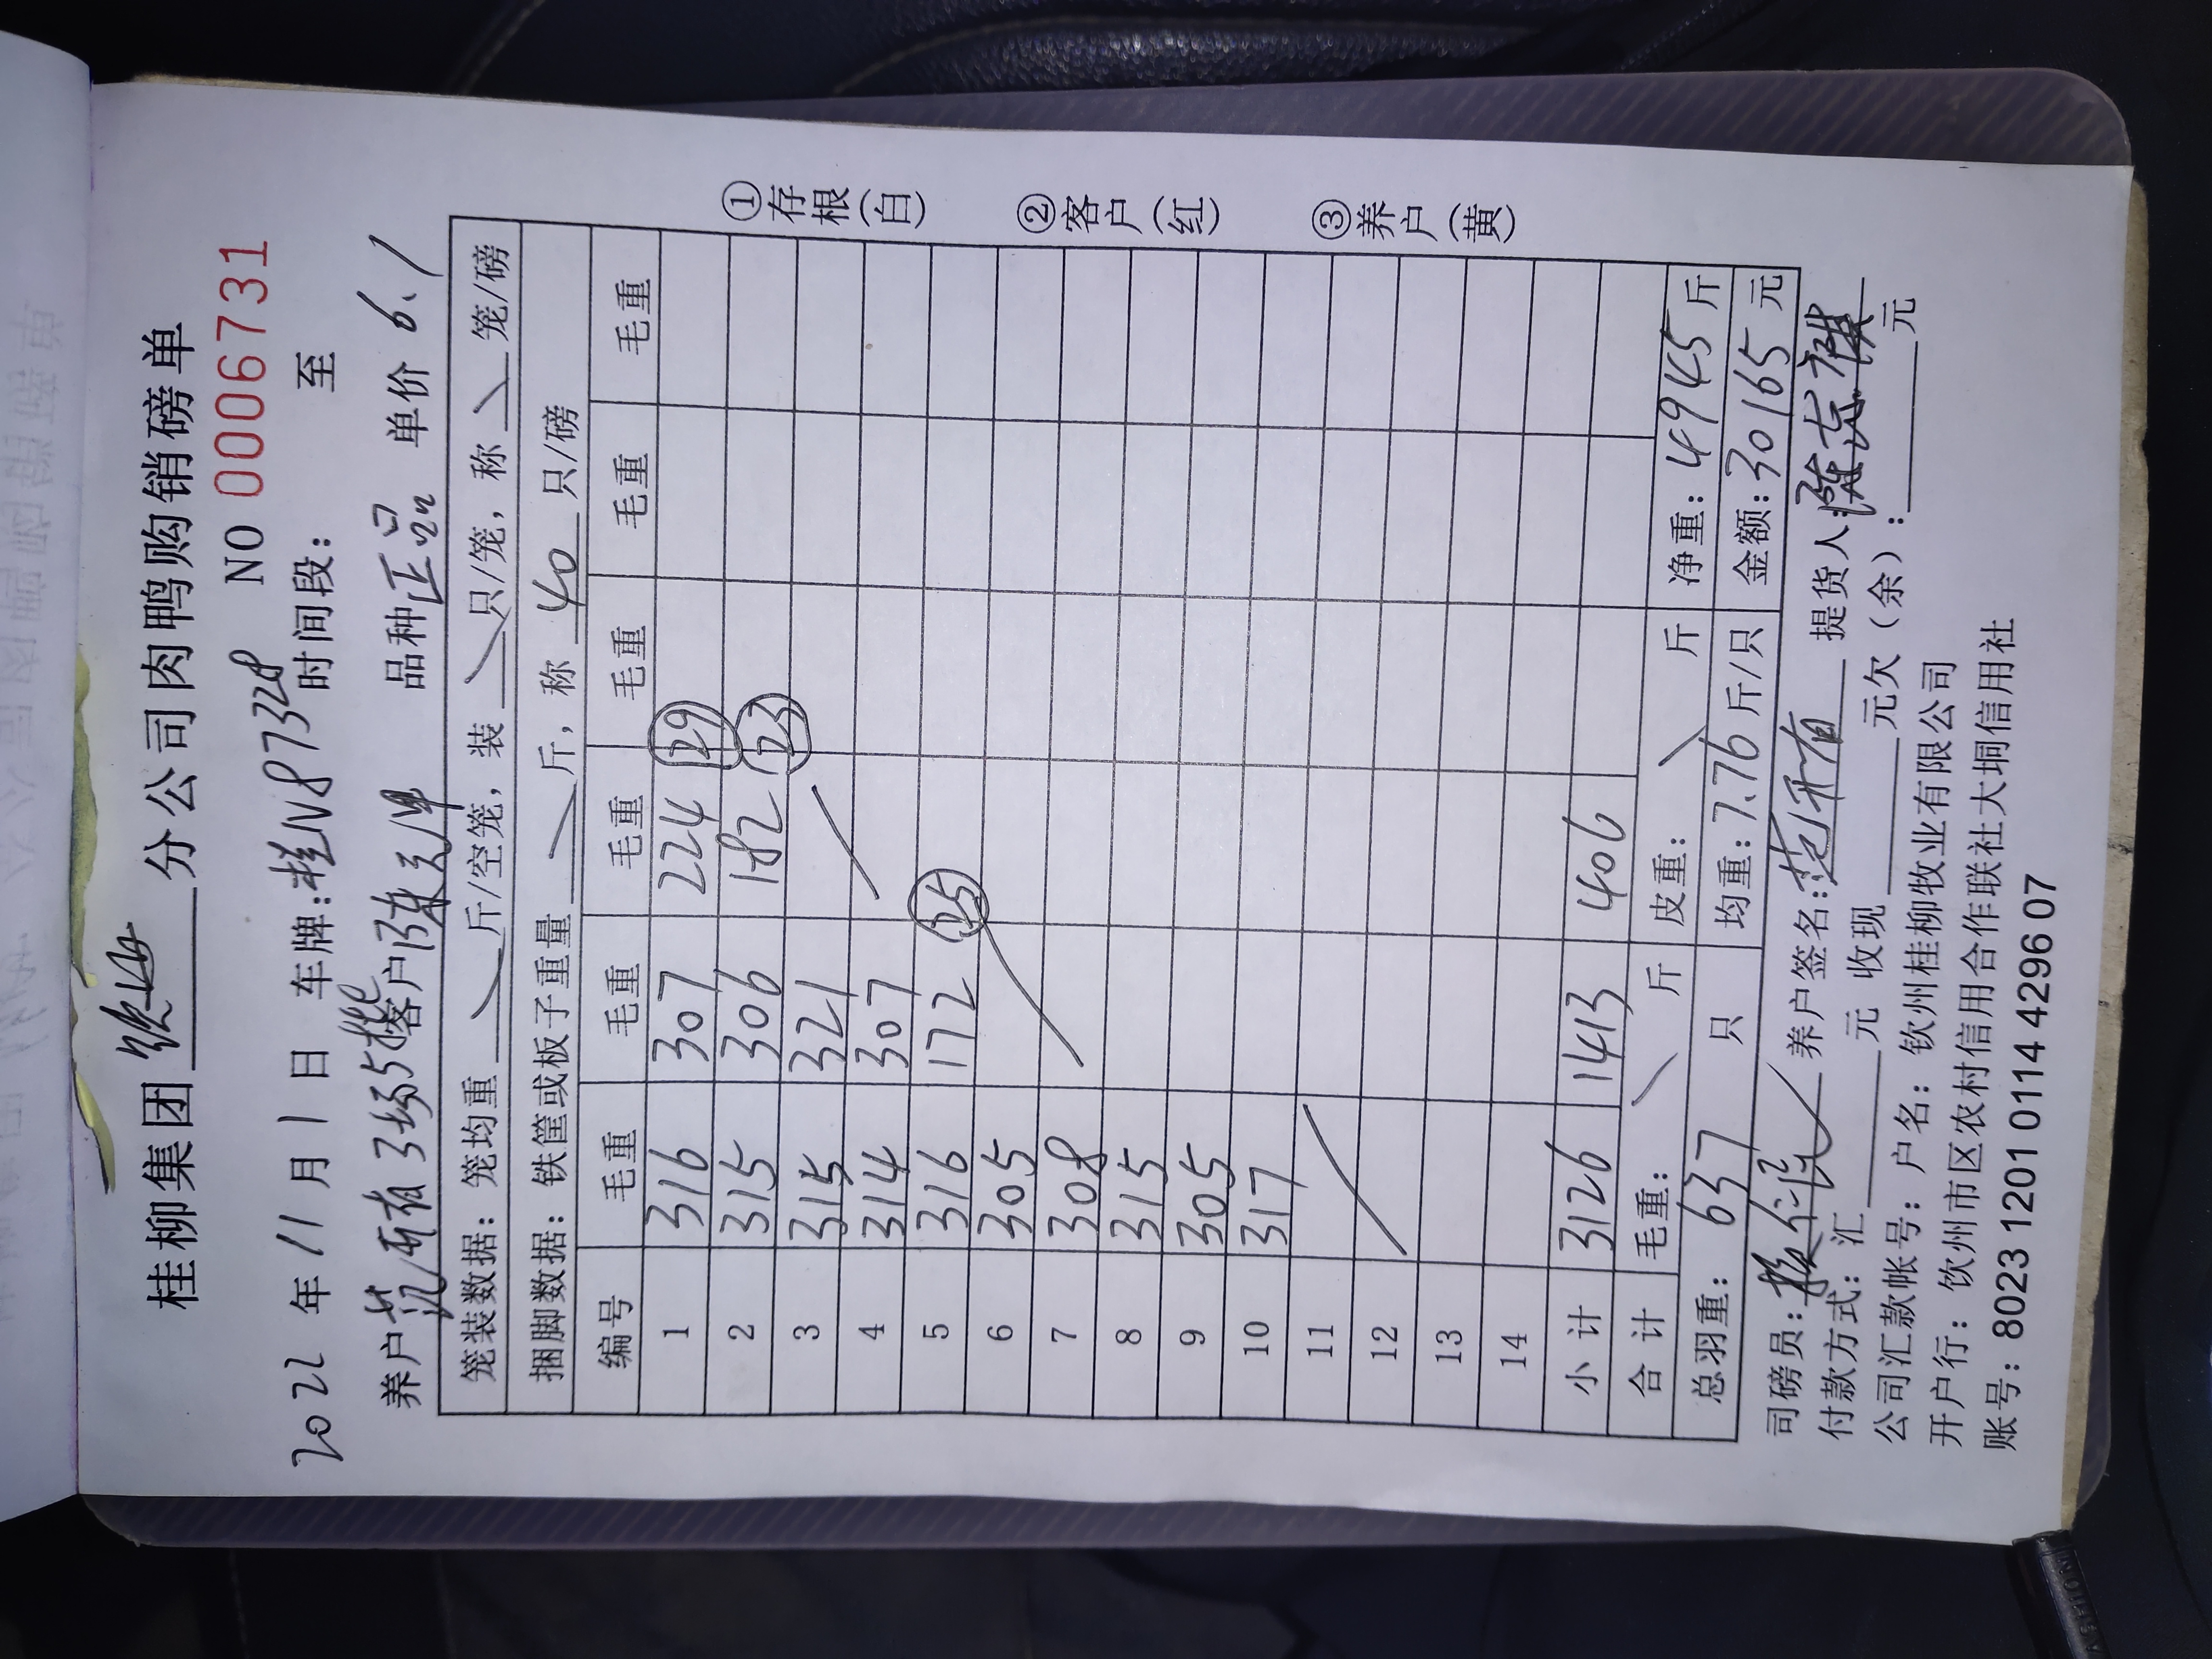 桂柳集团 钦州 分公司肉鸭购销磅单
NO 0006731
2022 年 11 月 1 日 车牌: 桂N87328 时间段: 至
养户 范开有 3场5批 客户 陈 品种 正品 单价 6.1
笼装数据: 笼均重 斤/空笼, 装 只/笼, 称 笼/磅
捆脚数据: 铁筐或板子重量 斤, 称 40 只/磅
编号 毛重 毛重 毛重 毛重 毛重 毛重
1 316 307 224 29
2 315 306 182 23
3 315 321
4 314 307
5 316 172 25
6 305
7 308
8 315
9 305
10 317
11
12
13
14
小计 3126 1413 406
合计 毛重: 斤 皮重: 斤 净重: 4945 斤
总羽重: 637 只 均重: 7.76 斤/只 金额: 30165 元
①存根(白) ②客户(红) ③养户(黄)
司磅员: 养户签名: 范开有 提货人: 陈志
付款方式: 汇 元 收现 元欠(余): 元
公司汇款帐号: 户名: 钦州桂柳牧业有限公司
开户行: 饮州市区农村信用合作联社大垌信用社
账号: 8023 1201 0114 4296 07